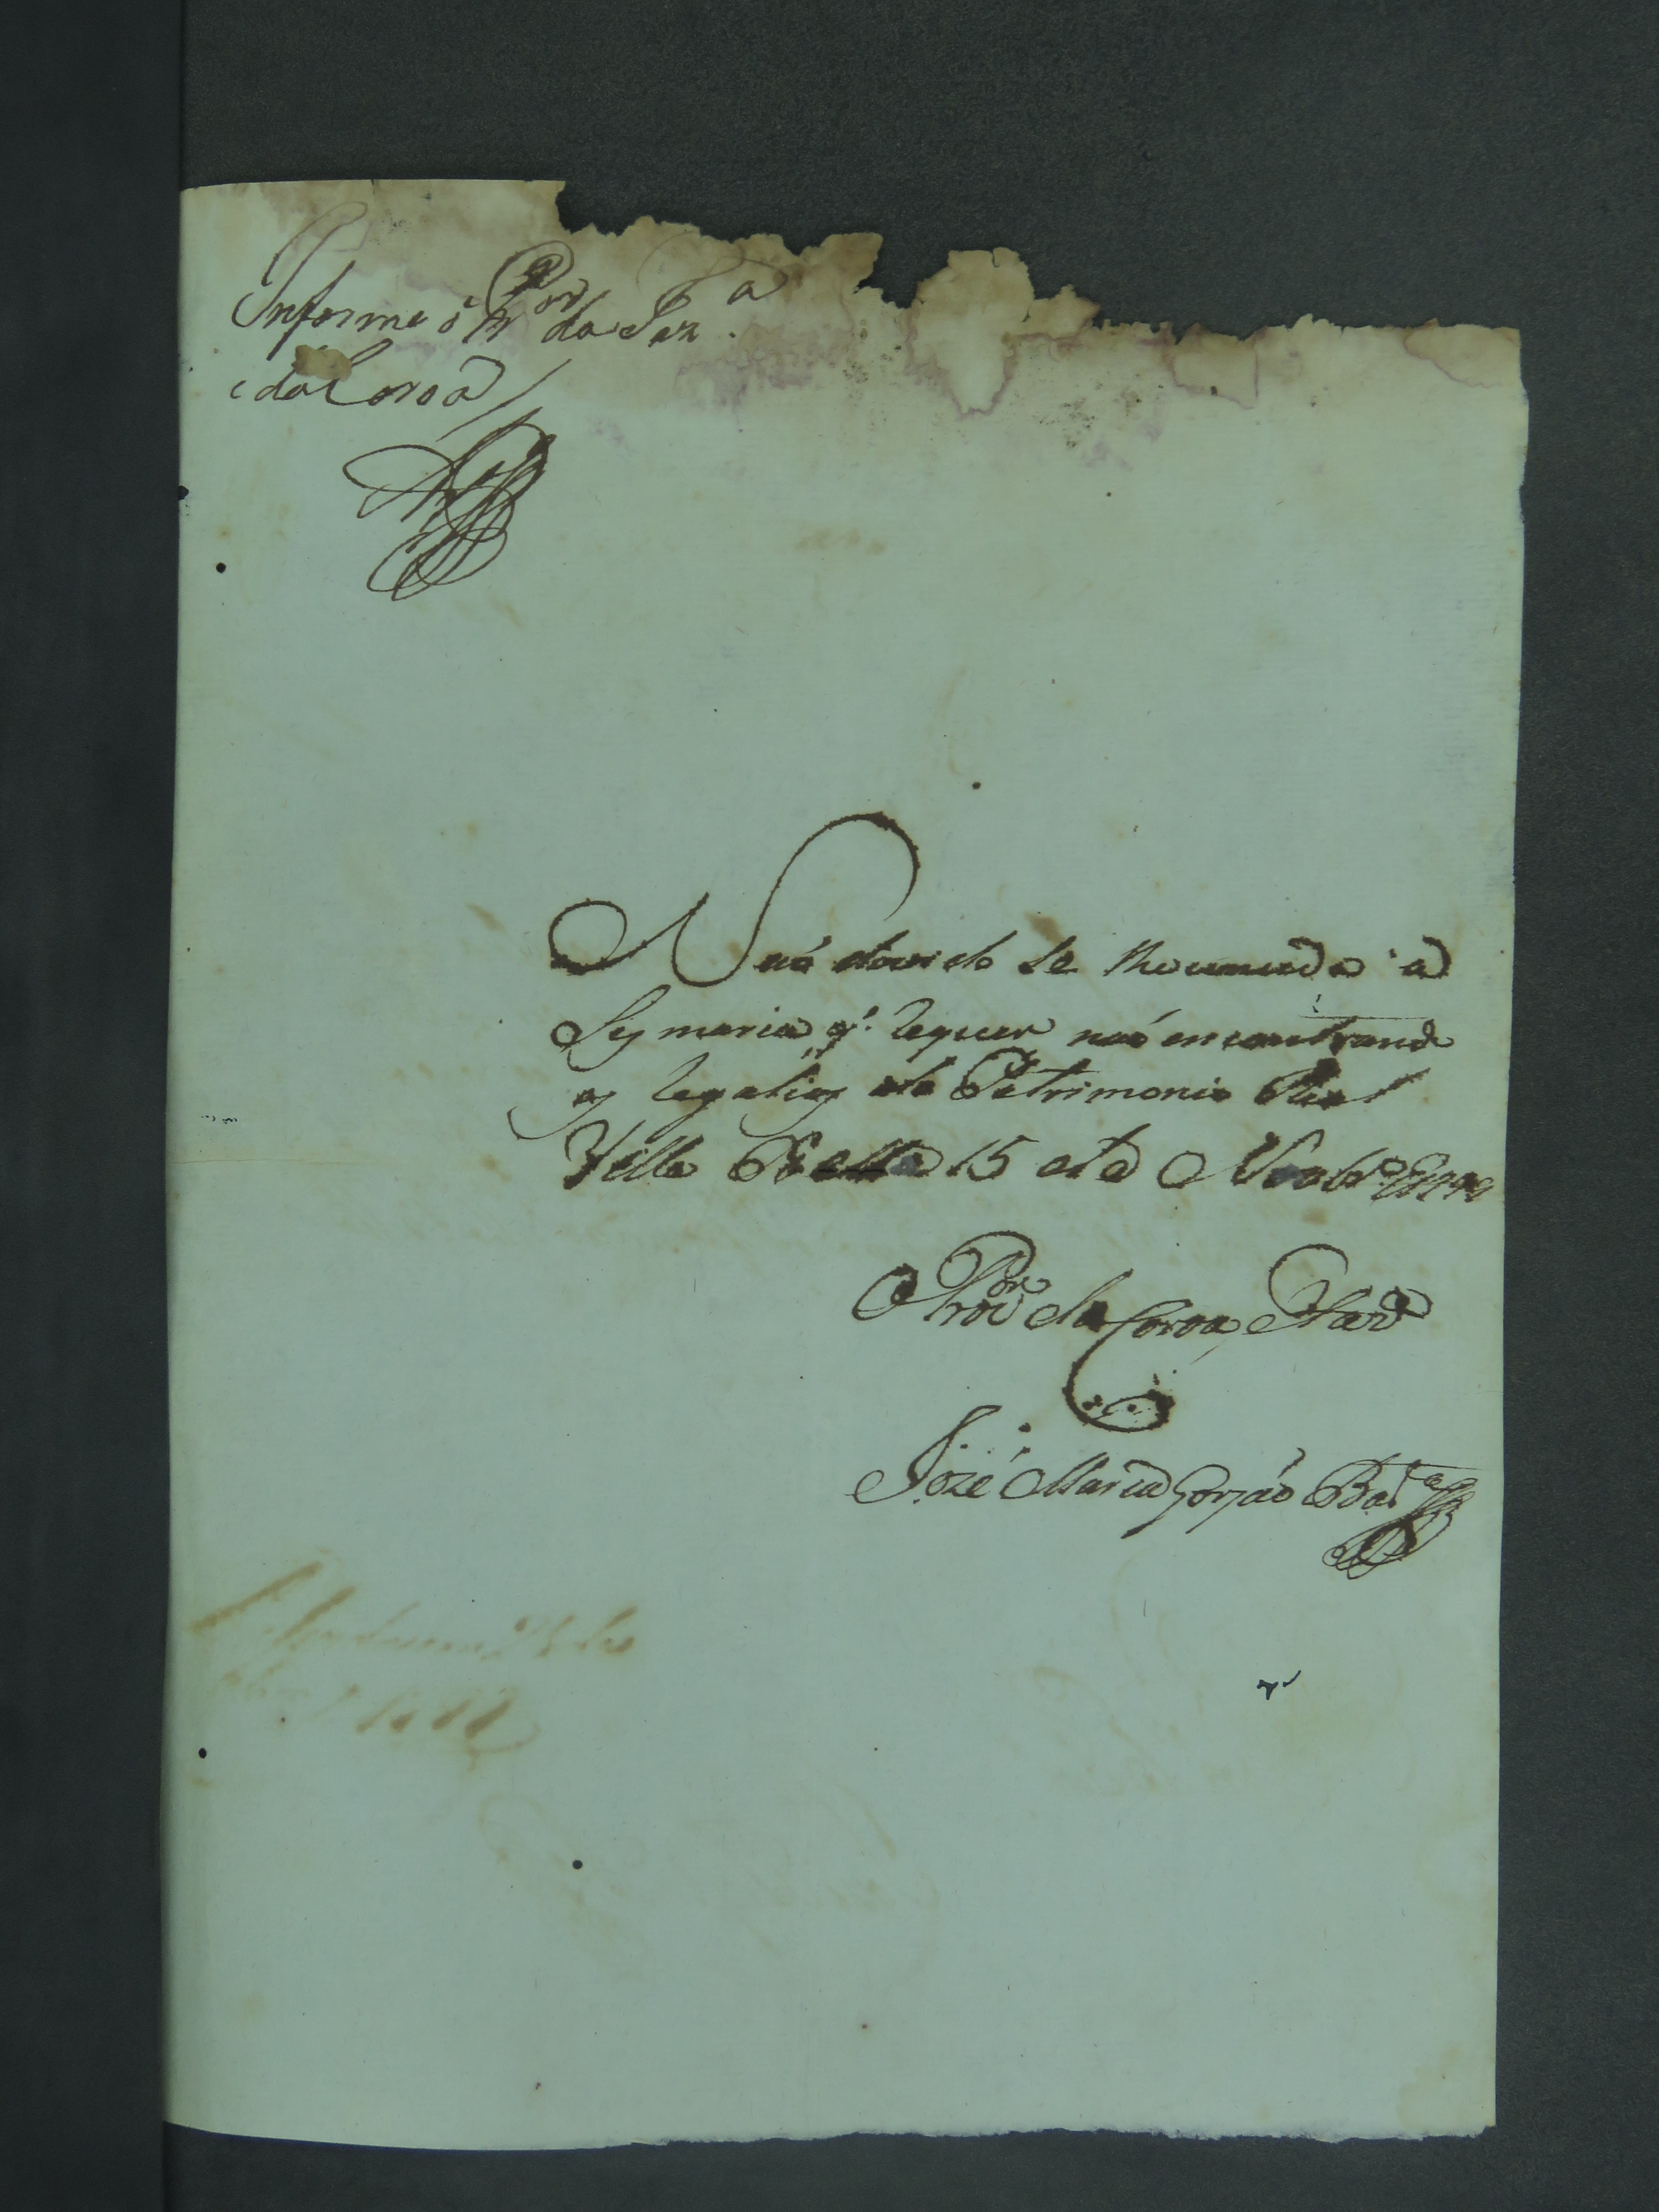 Informe o Pr.or da Faz.a
e da Coroa /
Naó duvido se Conceda a
Sesmaria q.' requer naó encontrando
as regalias do Patrimonio Real
Villa Bella 15 de Novbr.o
O Pro.or da Coroa e Faz.da
Jozé Maria Gorjaó